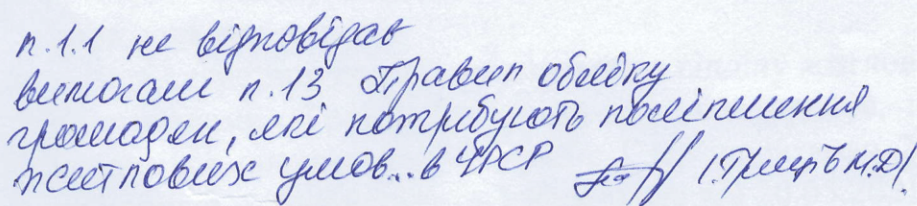 п.1.1 не відповідає
вимогам п.13 Правил обліку
громадян, які потребують поліпшення
житлових умов... в УРСР /Гриців М.Д/.